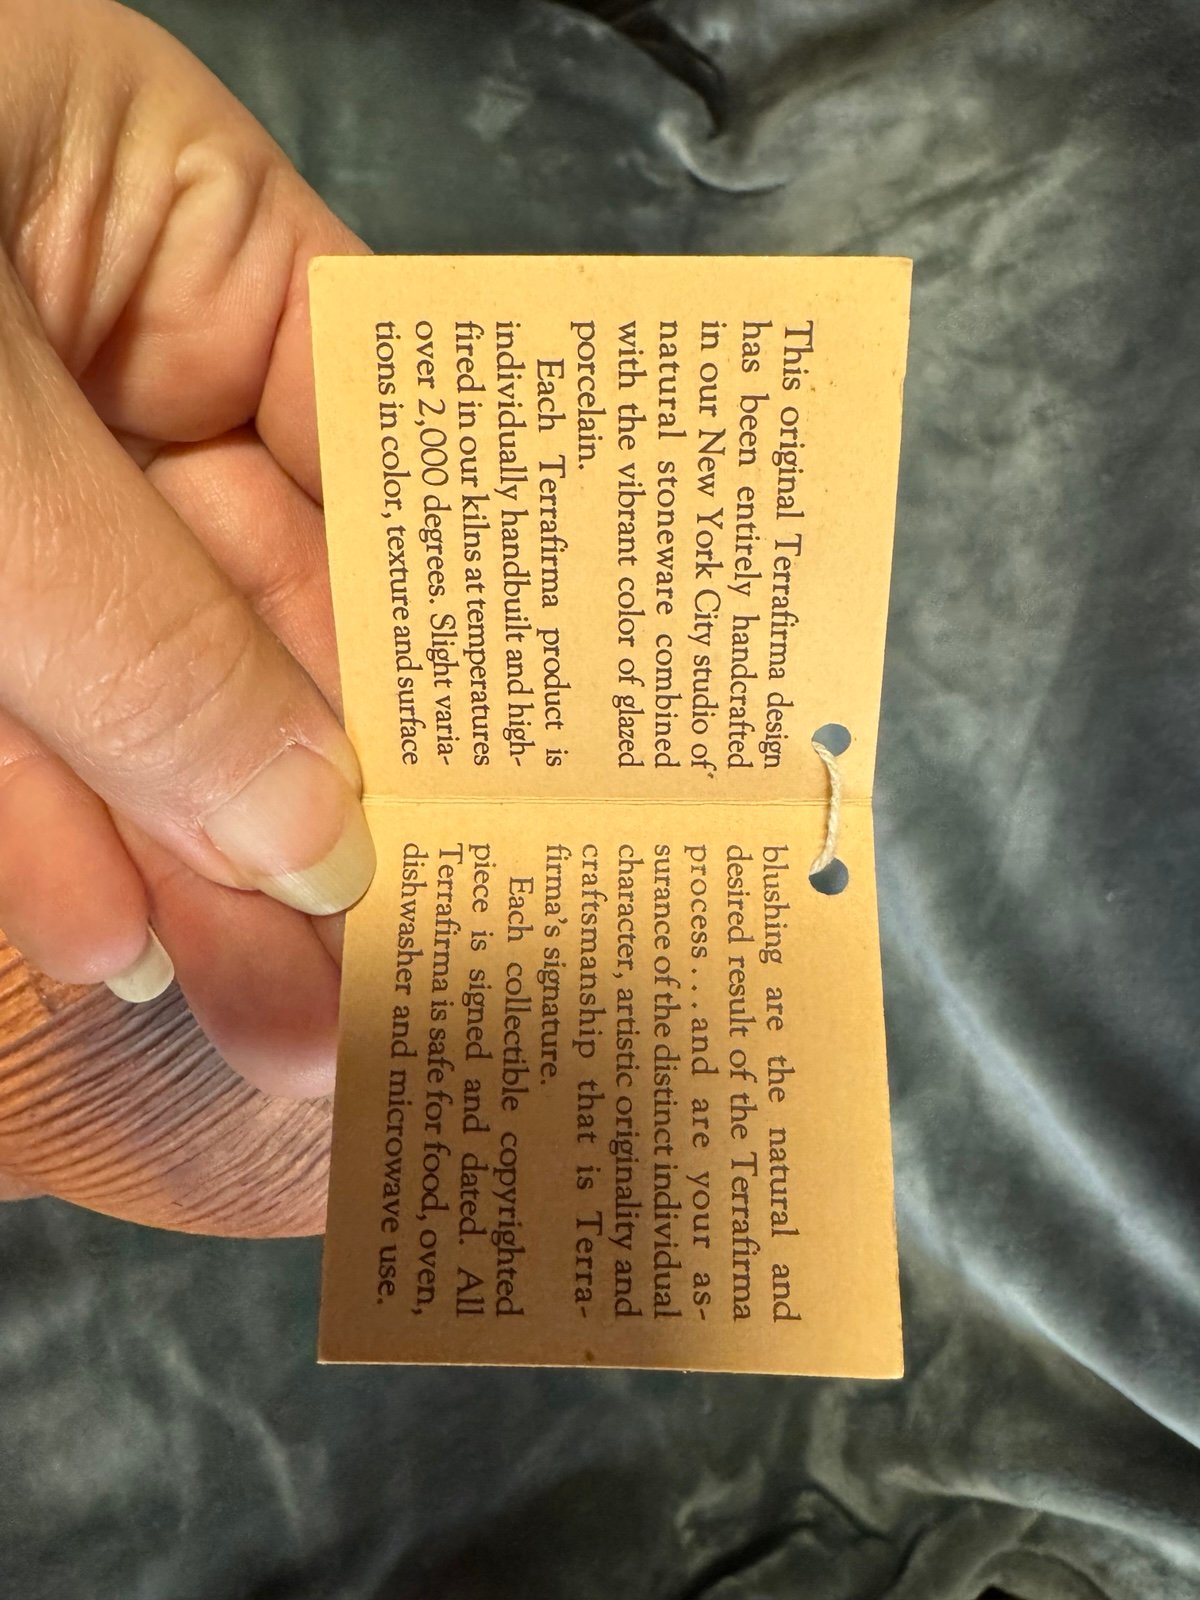 This original Terrafirma design
has been entirely handcrafted
in our New York City studio of
natural stoneware combined
with the vibrant color of glazed
porcelain.
Each Terrafirma product is
individually handbuilt and high-
fired in our kilns at temperatures
over 2,000 degrees. Slight varia-
tions in color, texture and surface
blushing are the natural and
desired result of the Terrafirma
process...and are your as-
surance of the distinct individual
character, artistic originality and
craftsmanship that is Terra-
firma's signature.
Each collectible copyrighted
piece is signed and dated. All
Terrafirma is safe for food, oven,
dishwasher and microwave use.